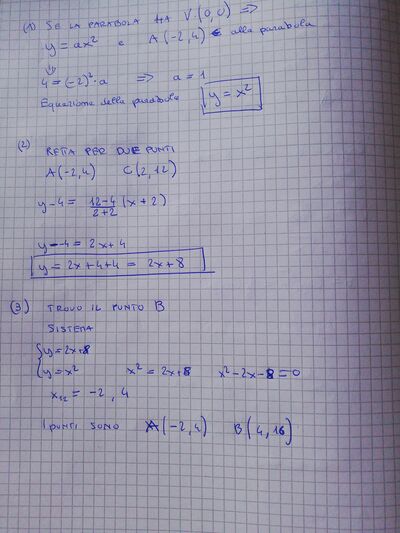 (1) SE LA PARABOLA HA V(0,0) =>
y = ax² e A(-2,4) ∈ alla parabola
⇓
4 = (-2)²·a => a = 1
Equazione della parabola y = x²
(2) RETTA PER DUE PUNTI
A(-2,4) C(2,12)
y-4 = \frac{12-4}{2+2}(x+2)
y-4 = 2x+4
y = 2x+4+4 = 2x+8
(3) TROVO IL PUNTO B
SISTEMA
{y = 2x+8
{y = x² x² = 2x+8 x²-2x-8 = 0
x₁₂ = -2, 4
I PUNTI SONO A(-2,4) B(4,16)